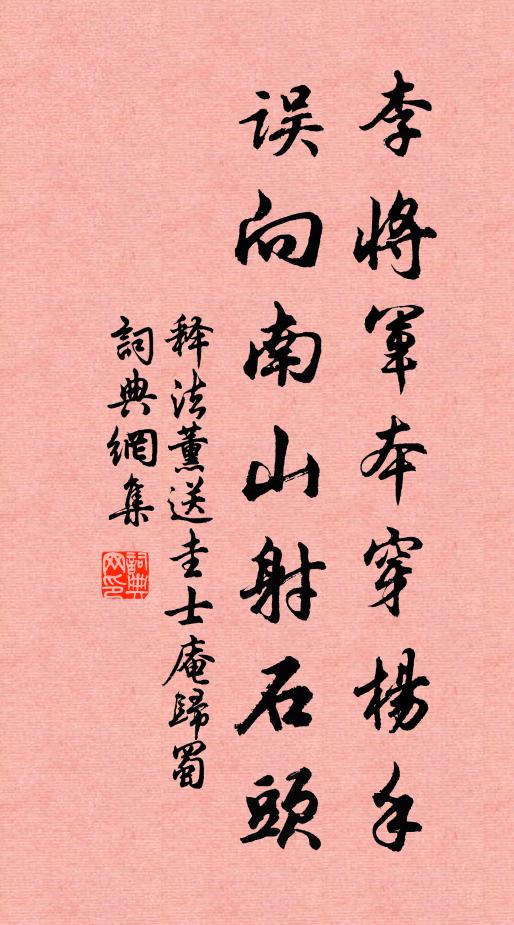 李將軍本穿楊手
误向南山射石頭
释法薰送圭士庵歸蜀
詞典網集
詞典网印